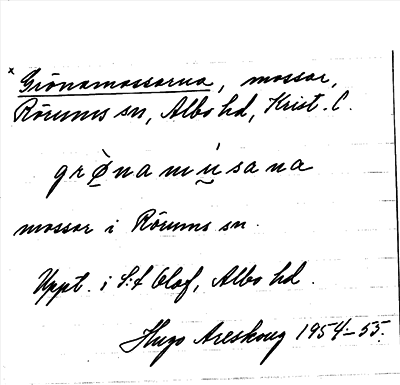 x Grönamossarna, mossar,
Rörums sn, Albo hd, Krist. l.
grø̀namu̯̇sana
mossar i Rörums sn.
Uppt. i S:t Olof, Albo hd.
Hugo Areskoug 1954-55.